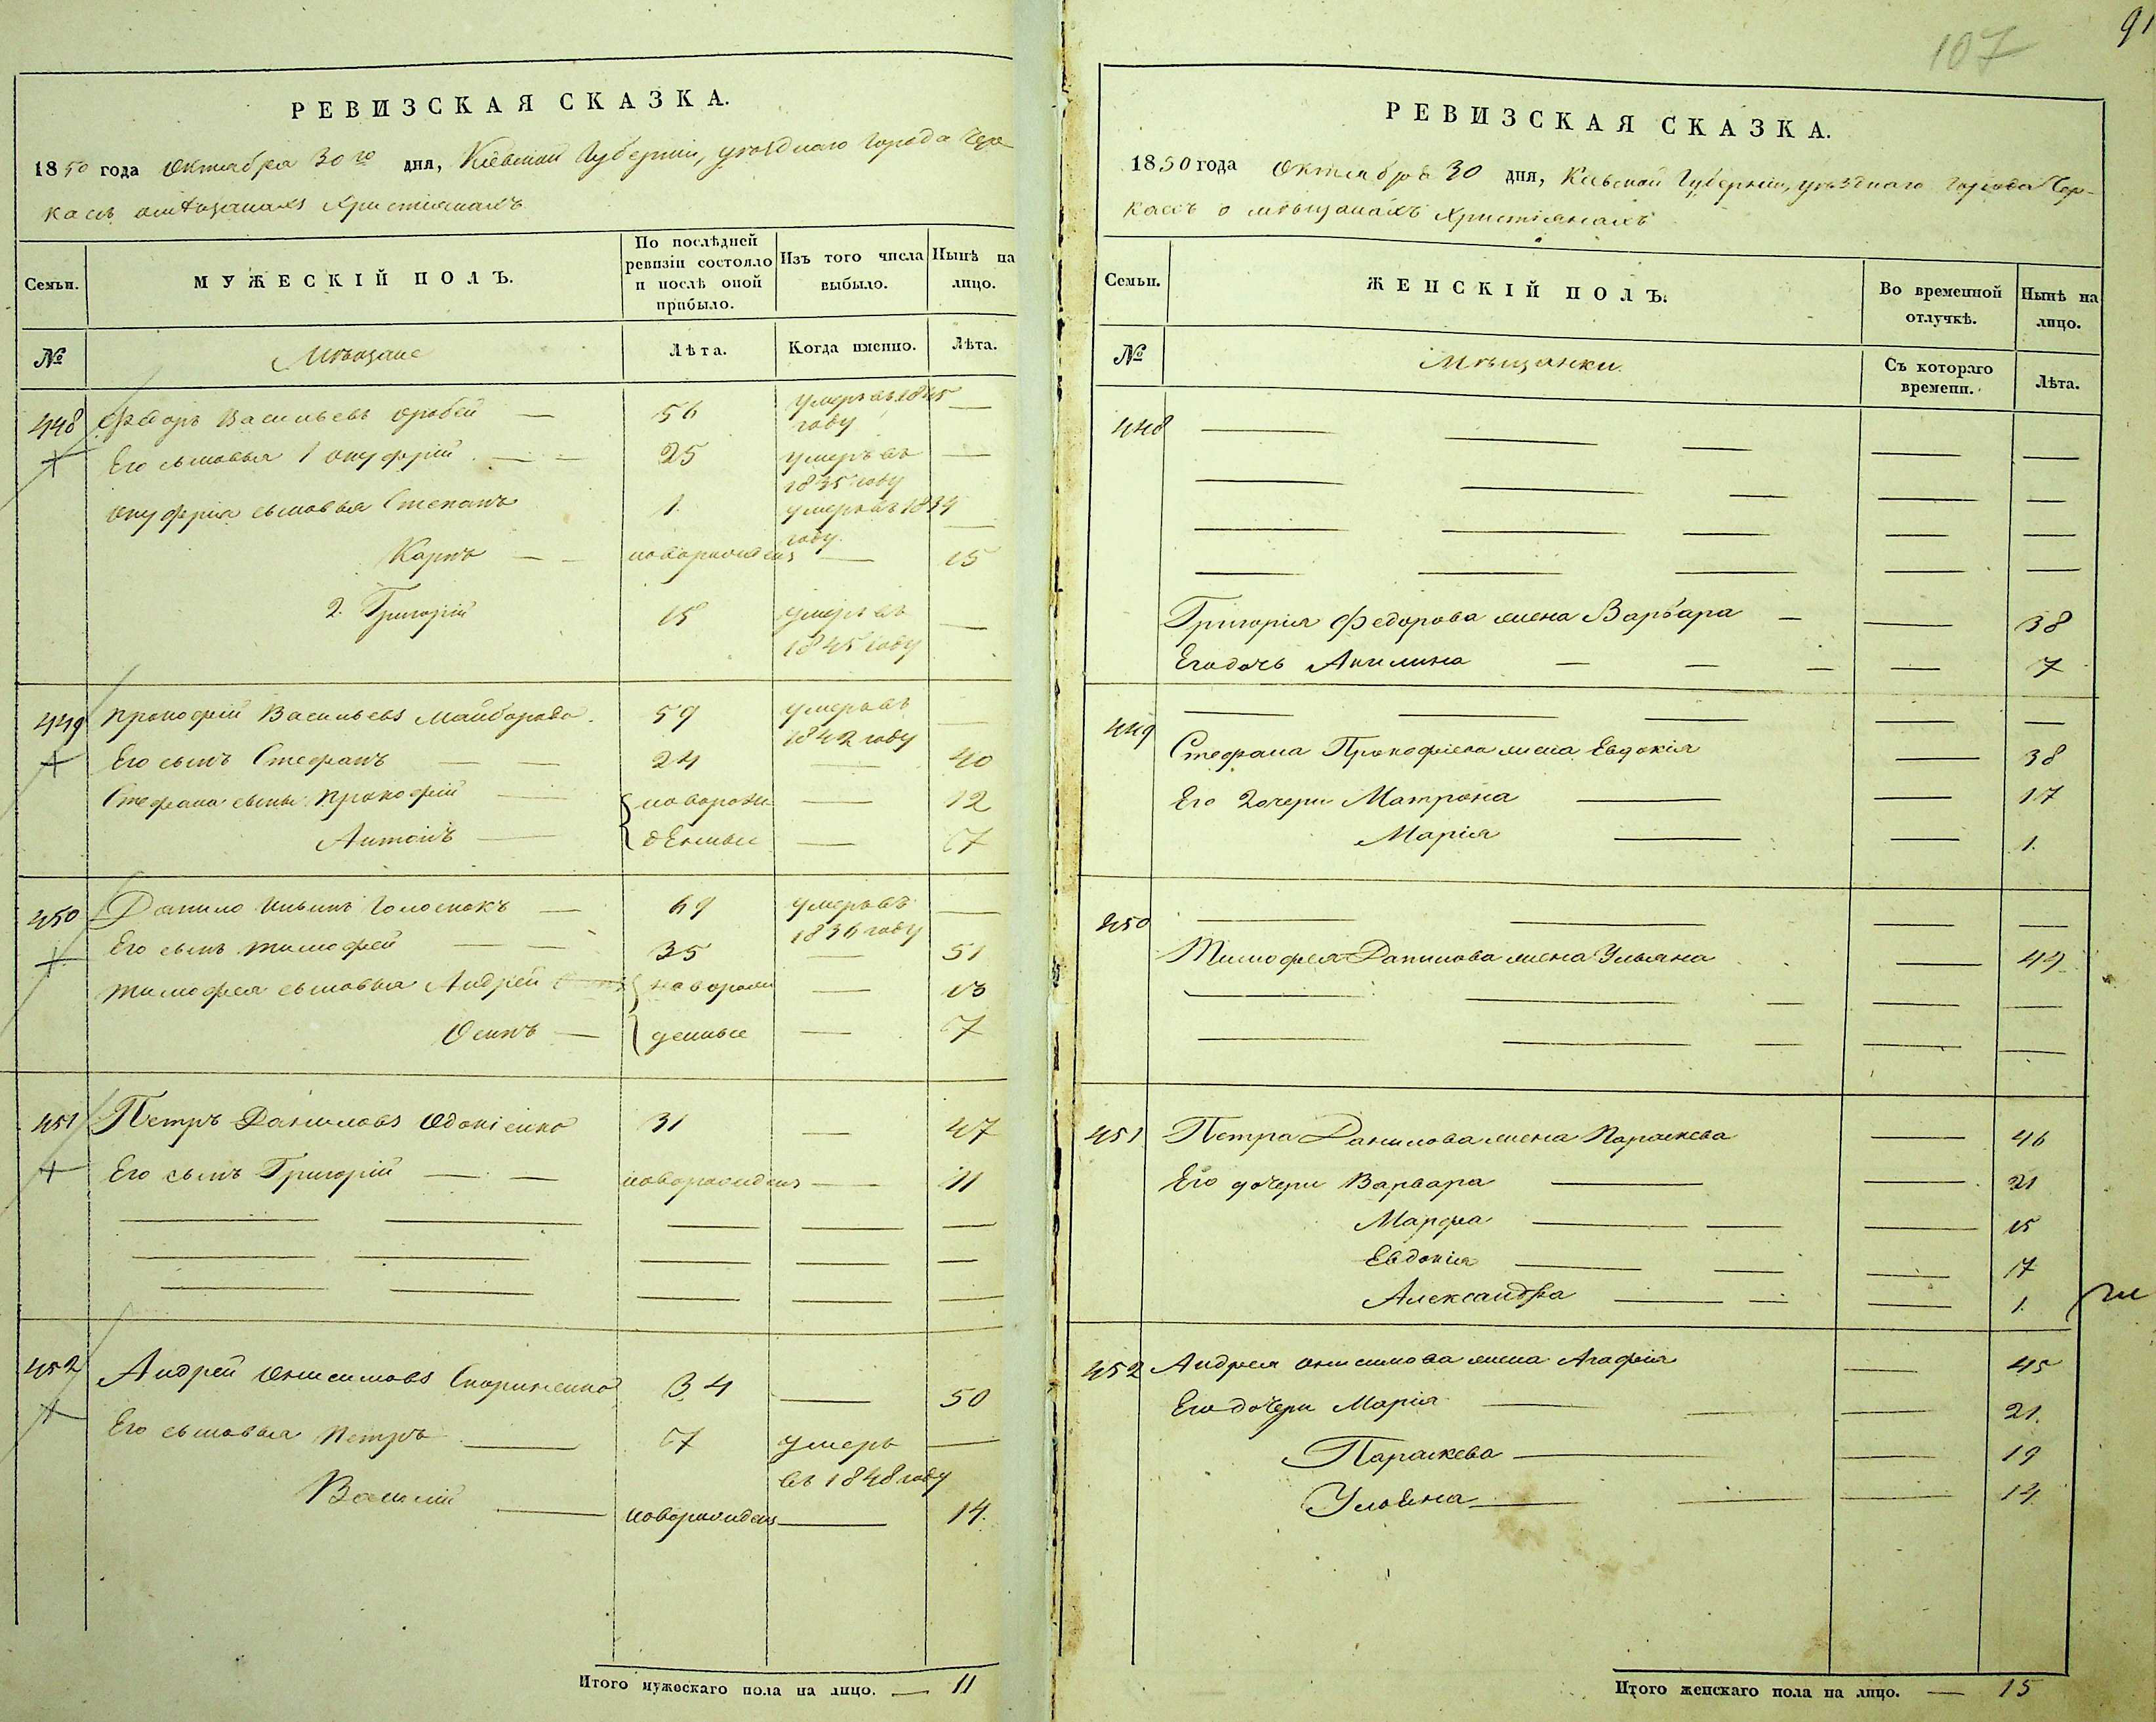 107
91
РЕВИЗСКАЯ СКАЗКА.
1850 года Октября 30го дня, Кіевской Губерніи, уѣзднаго города Чер-
касъ о мѣщанахъ Христіянахъ
Семьи.
МУЖЕСКІЙ ПОЛЪ.
По послѣдней ревизіи состояло и послѣ оной прибыло.
Изъ того числа выбыло.
Нынѣ на лицо.
№ Мѣщане Лѣта. Когда именно. Лѣта.
448 Федоръ Васильевъ Оробей — 56 умеръ въ 1845 году —
Его сыновья 1 Онуфрій — — 25 умеръ въ 1835 году —
Онуфрія сыновья Степанъ 1. умеръ въ 1834 году. —
Карпъ — — новорожденъ — 15
2. Григорій 18 умеръ въ 1845 году —
449 Прокофій Васильевъ Майборода. 59 умеръ въ 1842 году —
Его сынъ Стефанъ — — 24 — 40
Стефана сыны Прокофій — новорож — 12
Антонъ — денные — 7
450 Данило Ильинъ Голоснокъ — 69 умеръ въ 1836 году —
Его сынъ Тимофей — — 35 — 51
Тимофея сыновья Андрей новорож — 13
Осипъ — денные — 7
451 Петръ Даниловъ 31 — 47
Его сынъ Григорій — — новорожденъ — 11
452 Андрей Онисимовъ 34 — 50
Его сыновья Петръ — 7 умеръ въ 1848 году —
Василій — новорожденъ — 14.
Итого мужескаго пола на лицо. — 11
РЕВИЗСКАЯ СКАЗКА.
1850 года Октября 30 дня, Кіевской Губерніи, уѣзднаго города Чер-
касъ о мѣщанахъ Христіянахъ
Семьи.
ЖЕНСКІЙ ПОЛЪ.
Во временной отлучкѣ.
Нынѣ на лицо.
№ Мѣщанки. Съ котораго времени. Лѣта.
448
Григорія Федорова жена Варвара — — 38
Его дочь Акилина — — — — 7
449
Стефана Прокофіева жена Евдокія — 38
Его дочери Матрона — — 17
Марія — — 1.
450
Тимофея Данилова жена Ульяна — 49
451 Петра Данилова жена Параскева — 46
Его дочери Варвара — — 21
Марфа — — — 15
Евдокія — — — 17
Александра — — — 1.
452 Андрея Онисимова жена Агафія — 45
Его дочери Марія — — — 21.
Параскева — — 19
Ульяна — — — 14
Итого женскаго пола на лицо. — 15